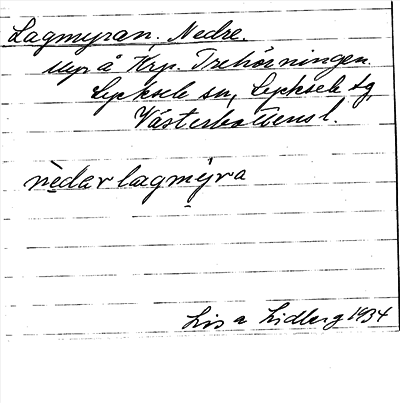 Lagmyran, Nedre
Myr å Krp. Trehörningen
Lycksele sn, Lycksele tg,
Västerbottens l.
nedar lagmýra
Lisa Lidberg 1934